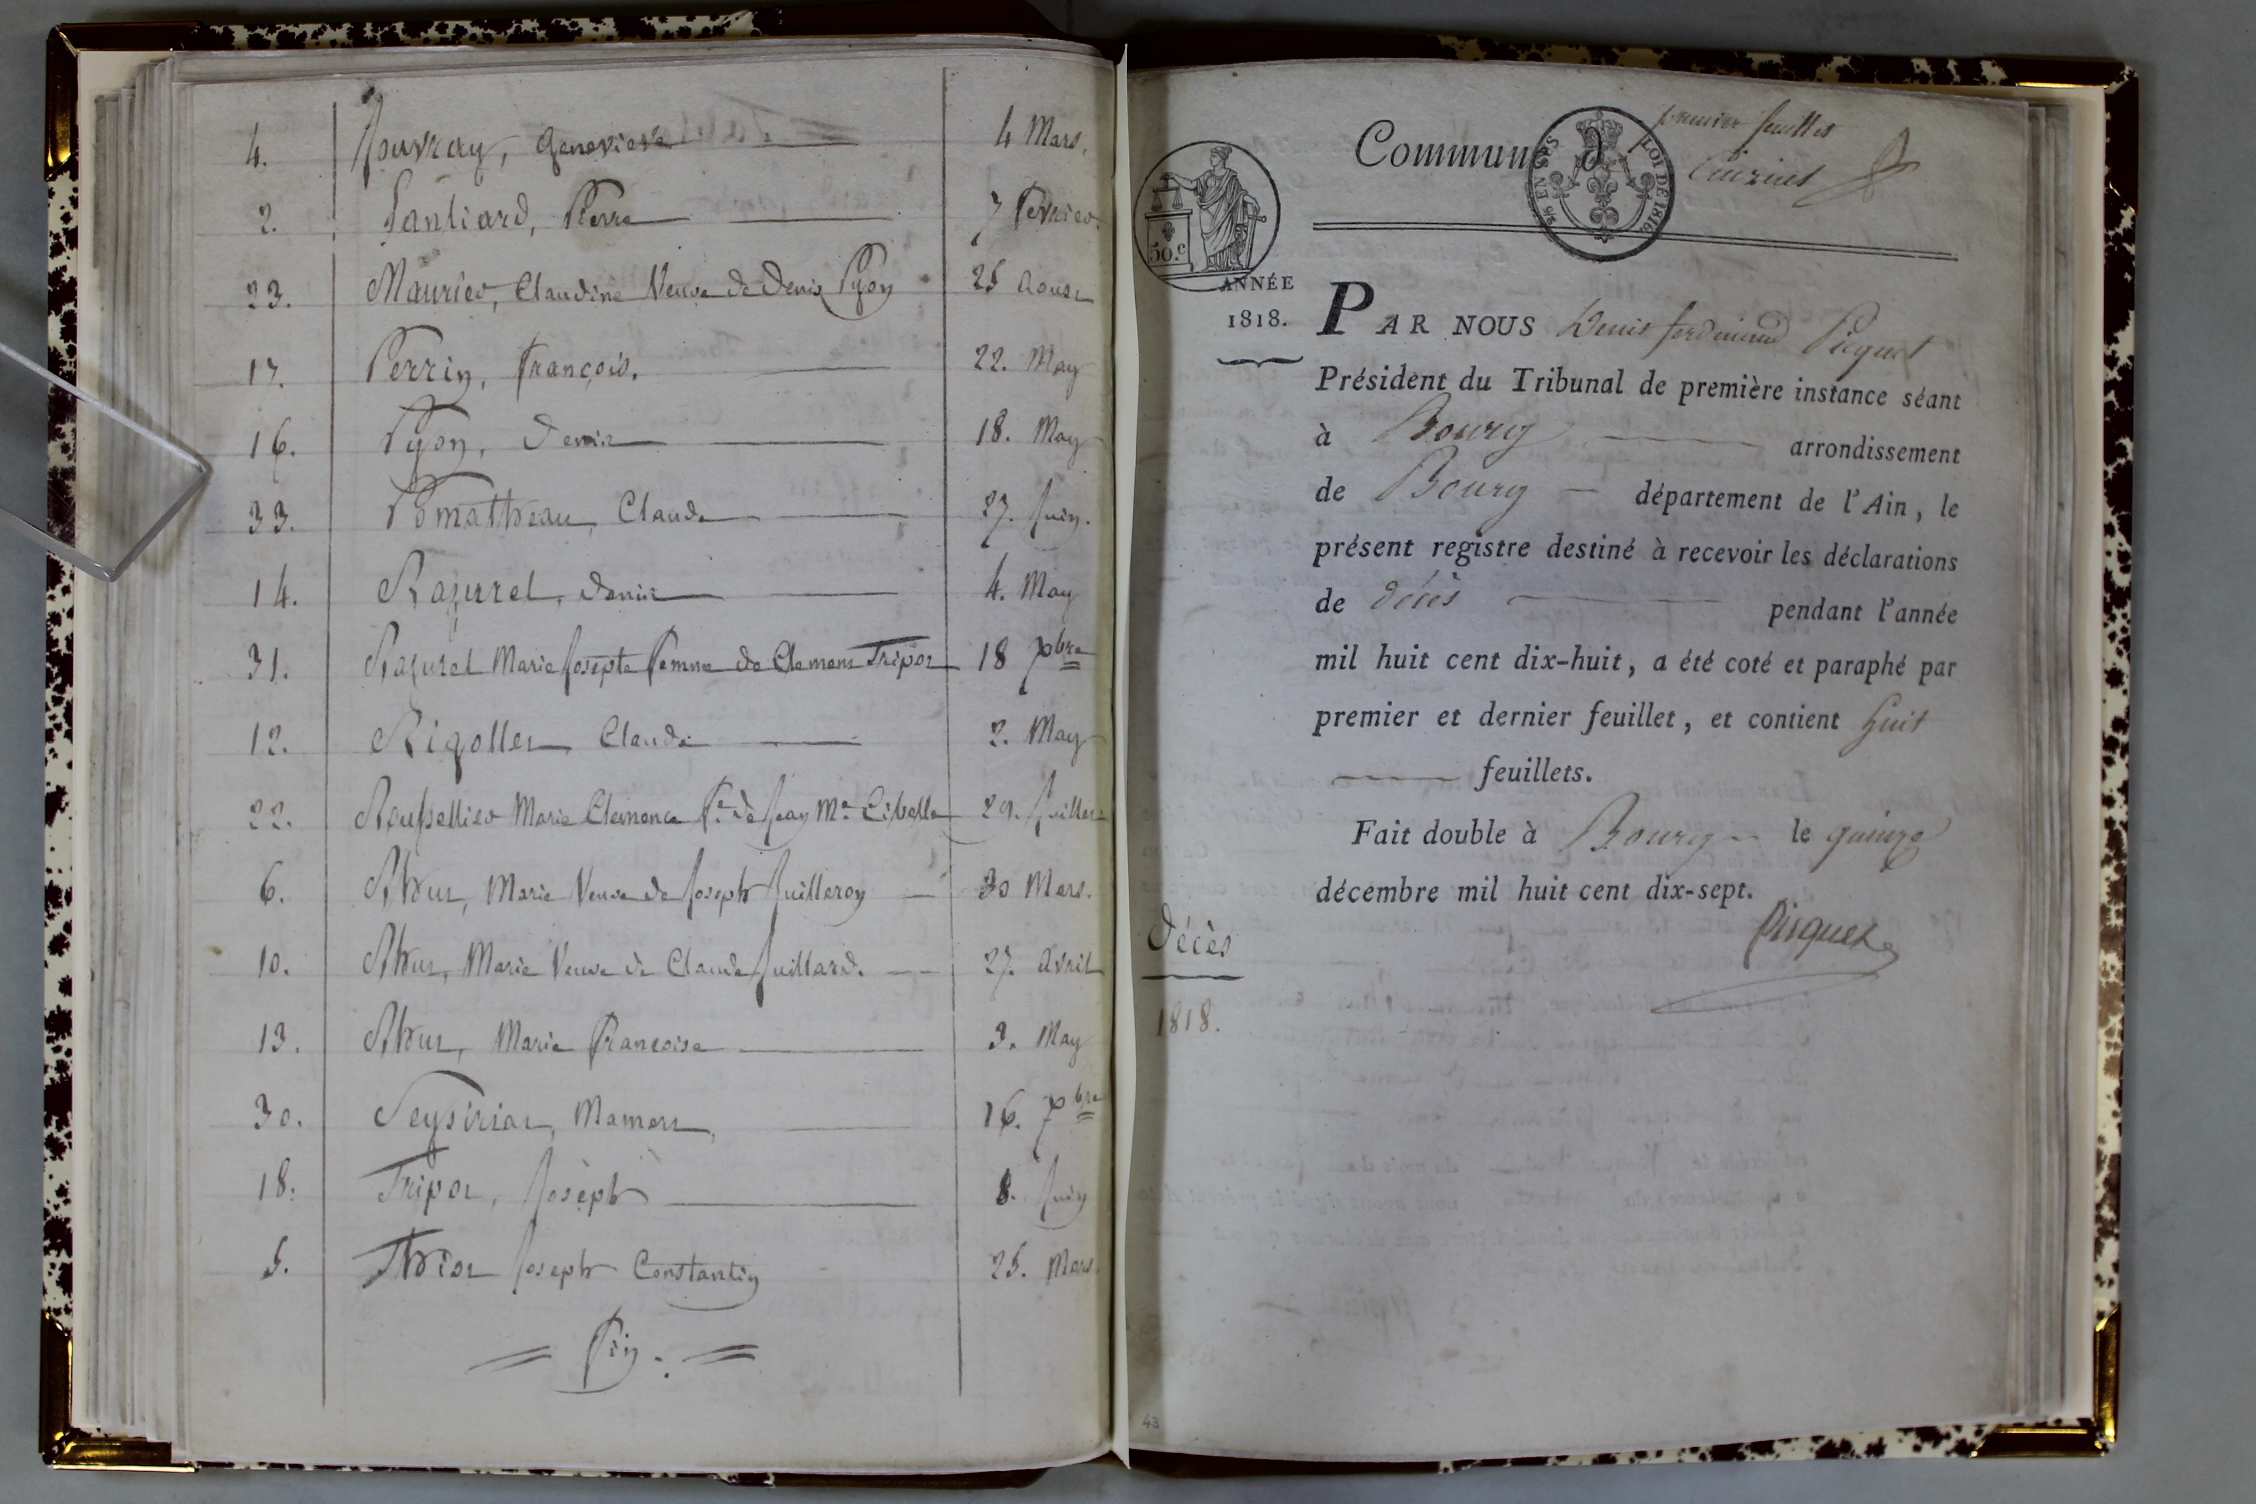 4. Jouvray, Genevieve 4 Mars.
2. Lanliard, Pierre 7 fevrier.
23. Maurier, Claudine Veuve de Denis Pyon 25 Aoust
17. Perrin, françois. 22. May
16. Pyon, Denis 18. May
33. Pomatheau, Claude 27. Juin.
14. Razurel, Denis 4. May
31. Razurel Marie Josepte femme de Clement Tripoz 18 7bre
12. Rigollet Claude 2. May
22. Marie Clemence fe. de Jean Me. 29. Juillet
6. Marie Veuve de Joseph Juilleron 30 Mars.
10. Marie Veuve de Claude Juillard. 27. Avril
13. Marie Francoise 3. May
30. Mamert, 16. 7bre
18. Tripoz, Joseph 8. Juin
5. Joseph Constantin 25. Mars.
Fin.
premier feuillet
Commune de Cuiziat
25 EN SUS
LOI DE 1816.
50.c
ANNÉE
1818.
PAR NOUS Denis ferdinand Piquet
Président du Tribunal de première instance séant
à Bourg arrondissement
de Bourg département de l'Ain, le
présent registre destiné à recevoir les déclarations
de décès pendant l'année
mil huit cent dix-huit, a été coté et paraphé par
premier et dernier feuillet, et contient huit
feuillets.
Fait double à Bourg le quinze
décembre mil huit cent dix-sept.
Piquet
Décès
1818.
43